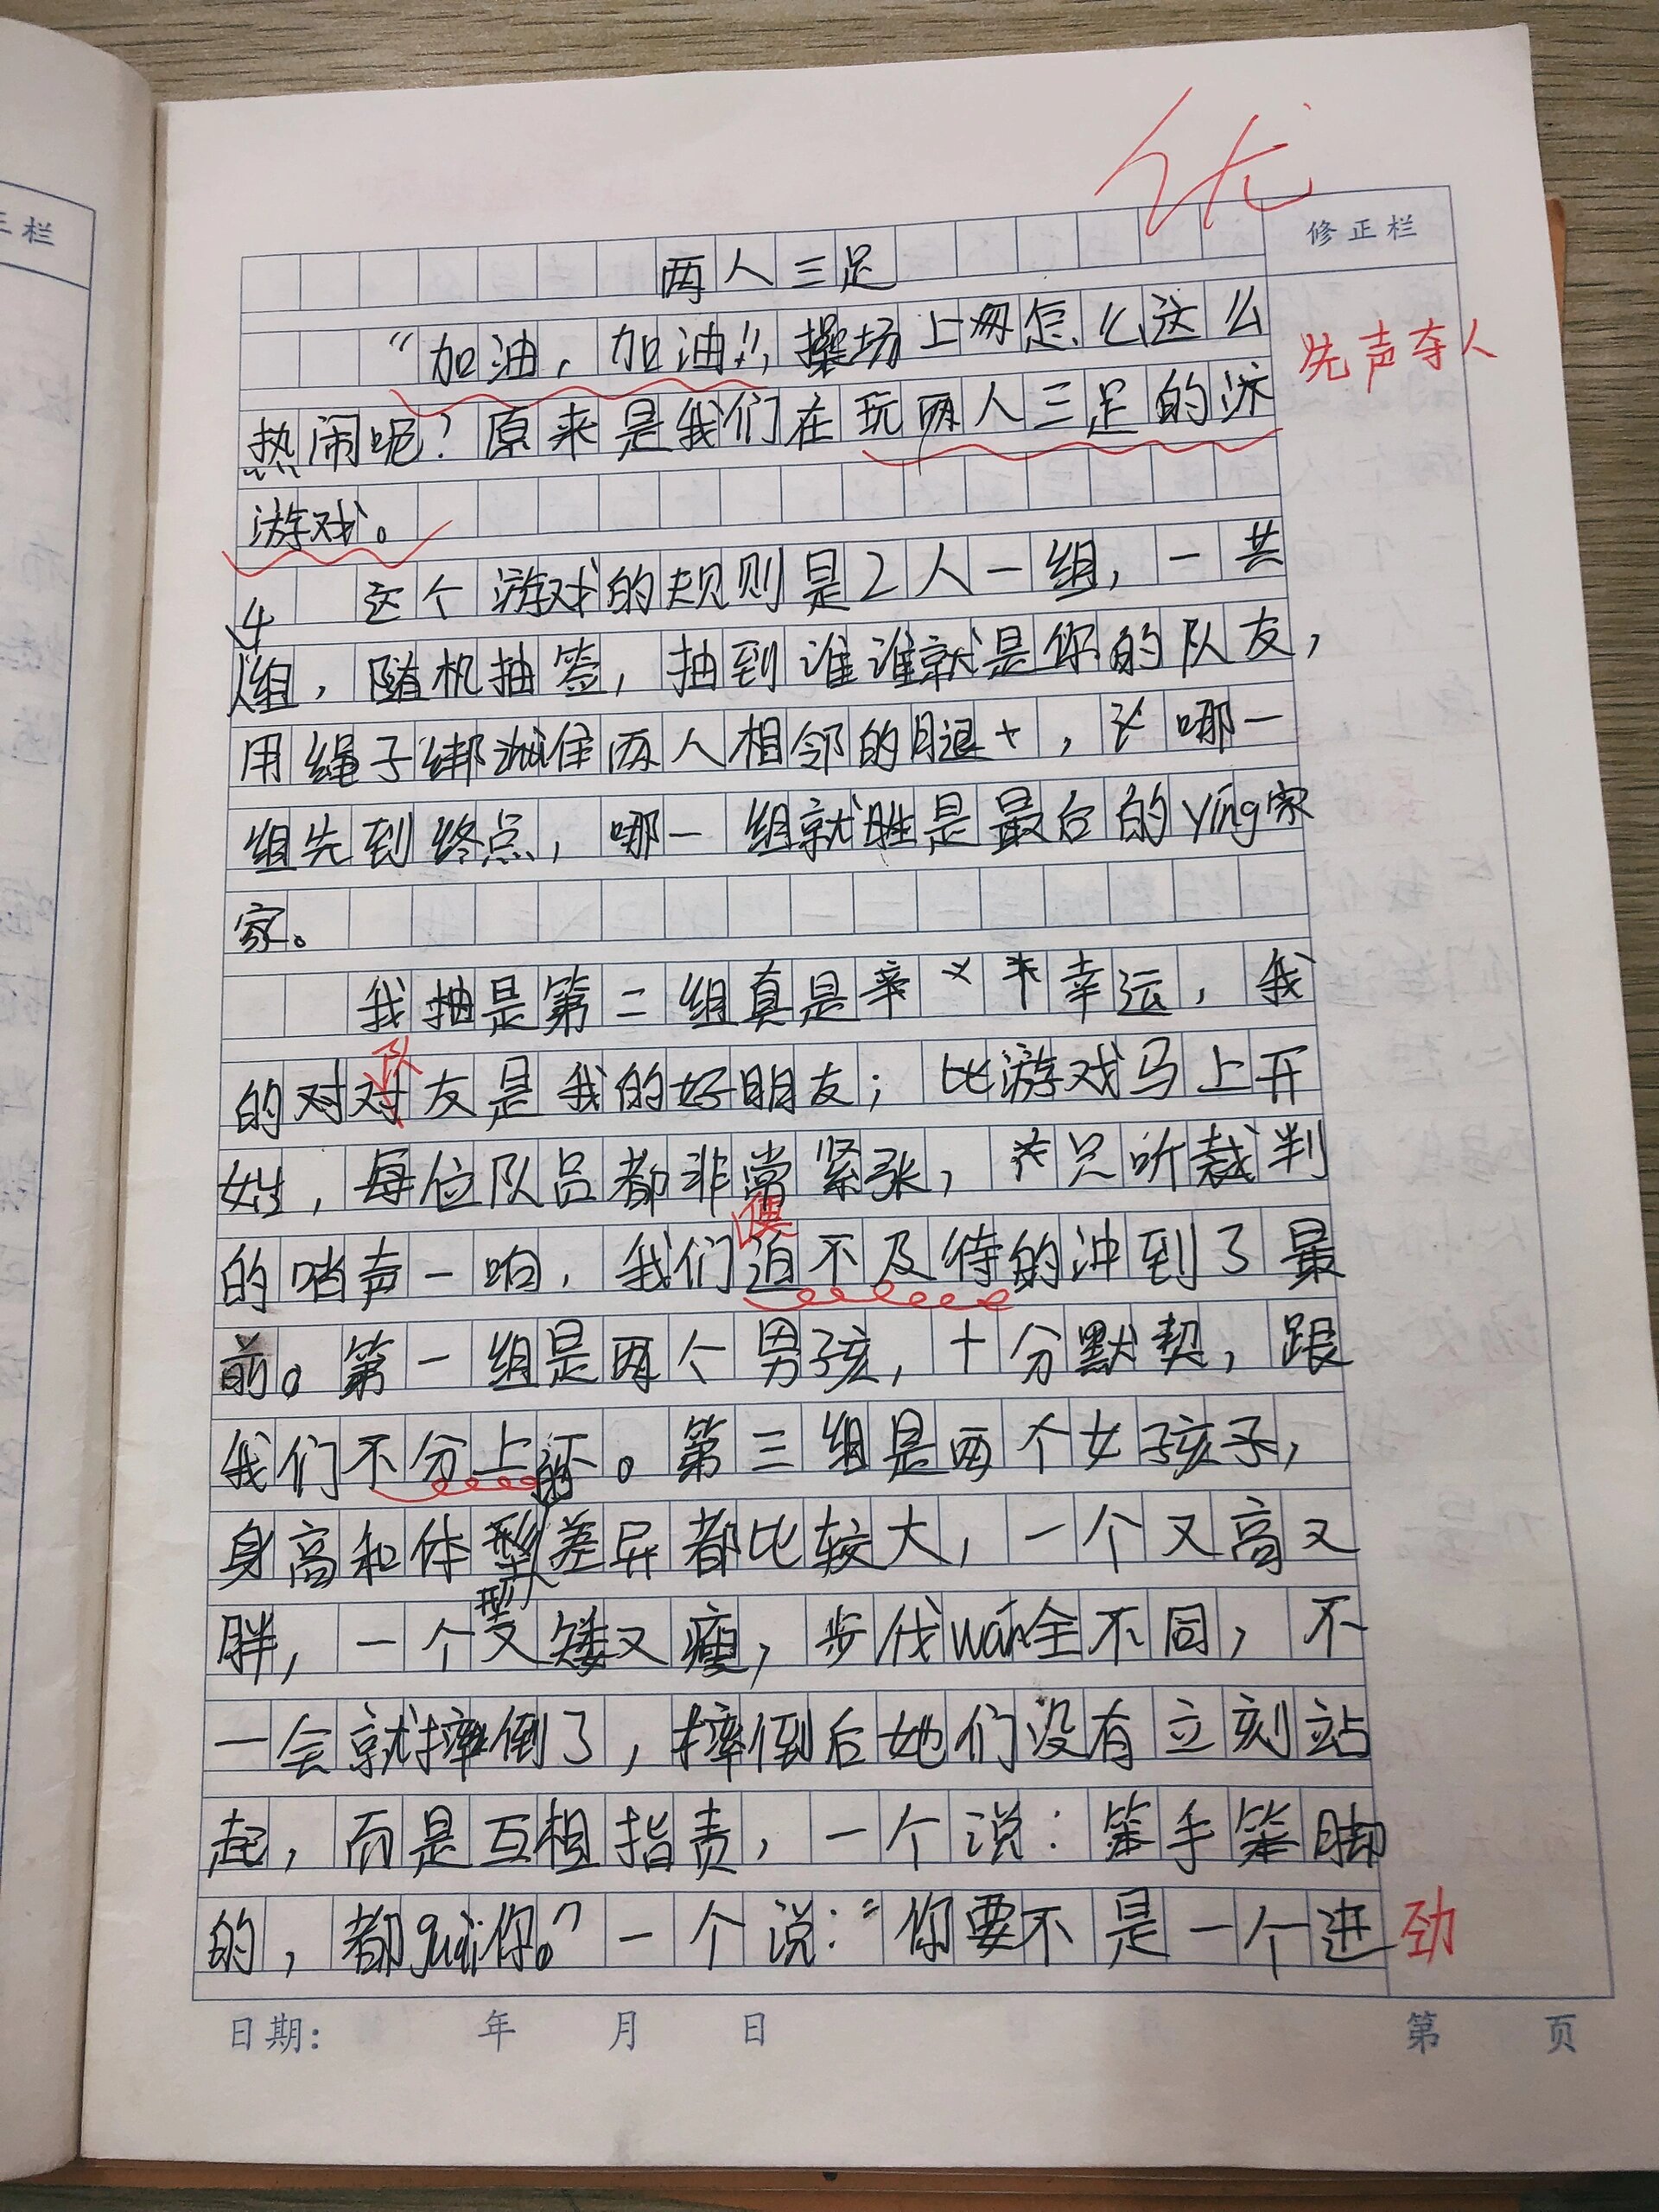 优
正栏
修正栏
两人三足
“加油，加油!”，操场上毋怎么这么
先声夺人
热闹呢？原来是我们在玩两人三足的
游戏。
这个游戏的规则是2人一组，一共
4
组，随机抽签，抽到谁谁就是你的队友，
用绳子绑住两人相邻的腿，哪一
组先到终点，哪一组就胜是最后的yíng家
家。
我抽是第二组真是幸运，我
队
的对对友是我的好朋友；比游戏马上开
始，每位队员都非常紧张，只听裁判
便
的哨声一响，我们迫不及待的冲到了最
前。第一组是两个男孩，十分默契，跟
我们不分上下。第三组是两个女孩子，
身高和体型差异都比较大，一个又高又
型
胖，一个又矮又瘦，步伐wán全不同，不
一会就摔倒了，摔倒后她们没有立刻站
起，而是互相指责，一个说：笨手笨脚
的，都guài你。”一个说：“你要不是一个进
劲
日期： 年 月 日
第 页